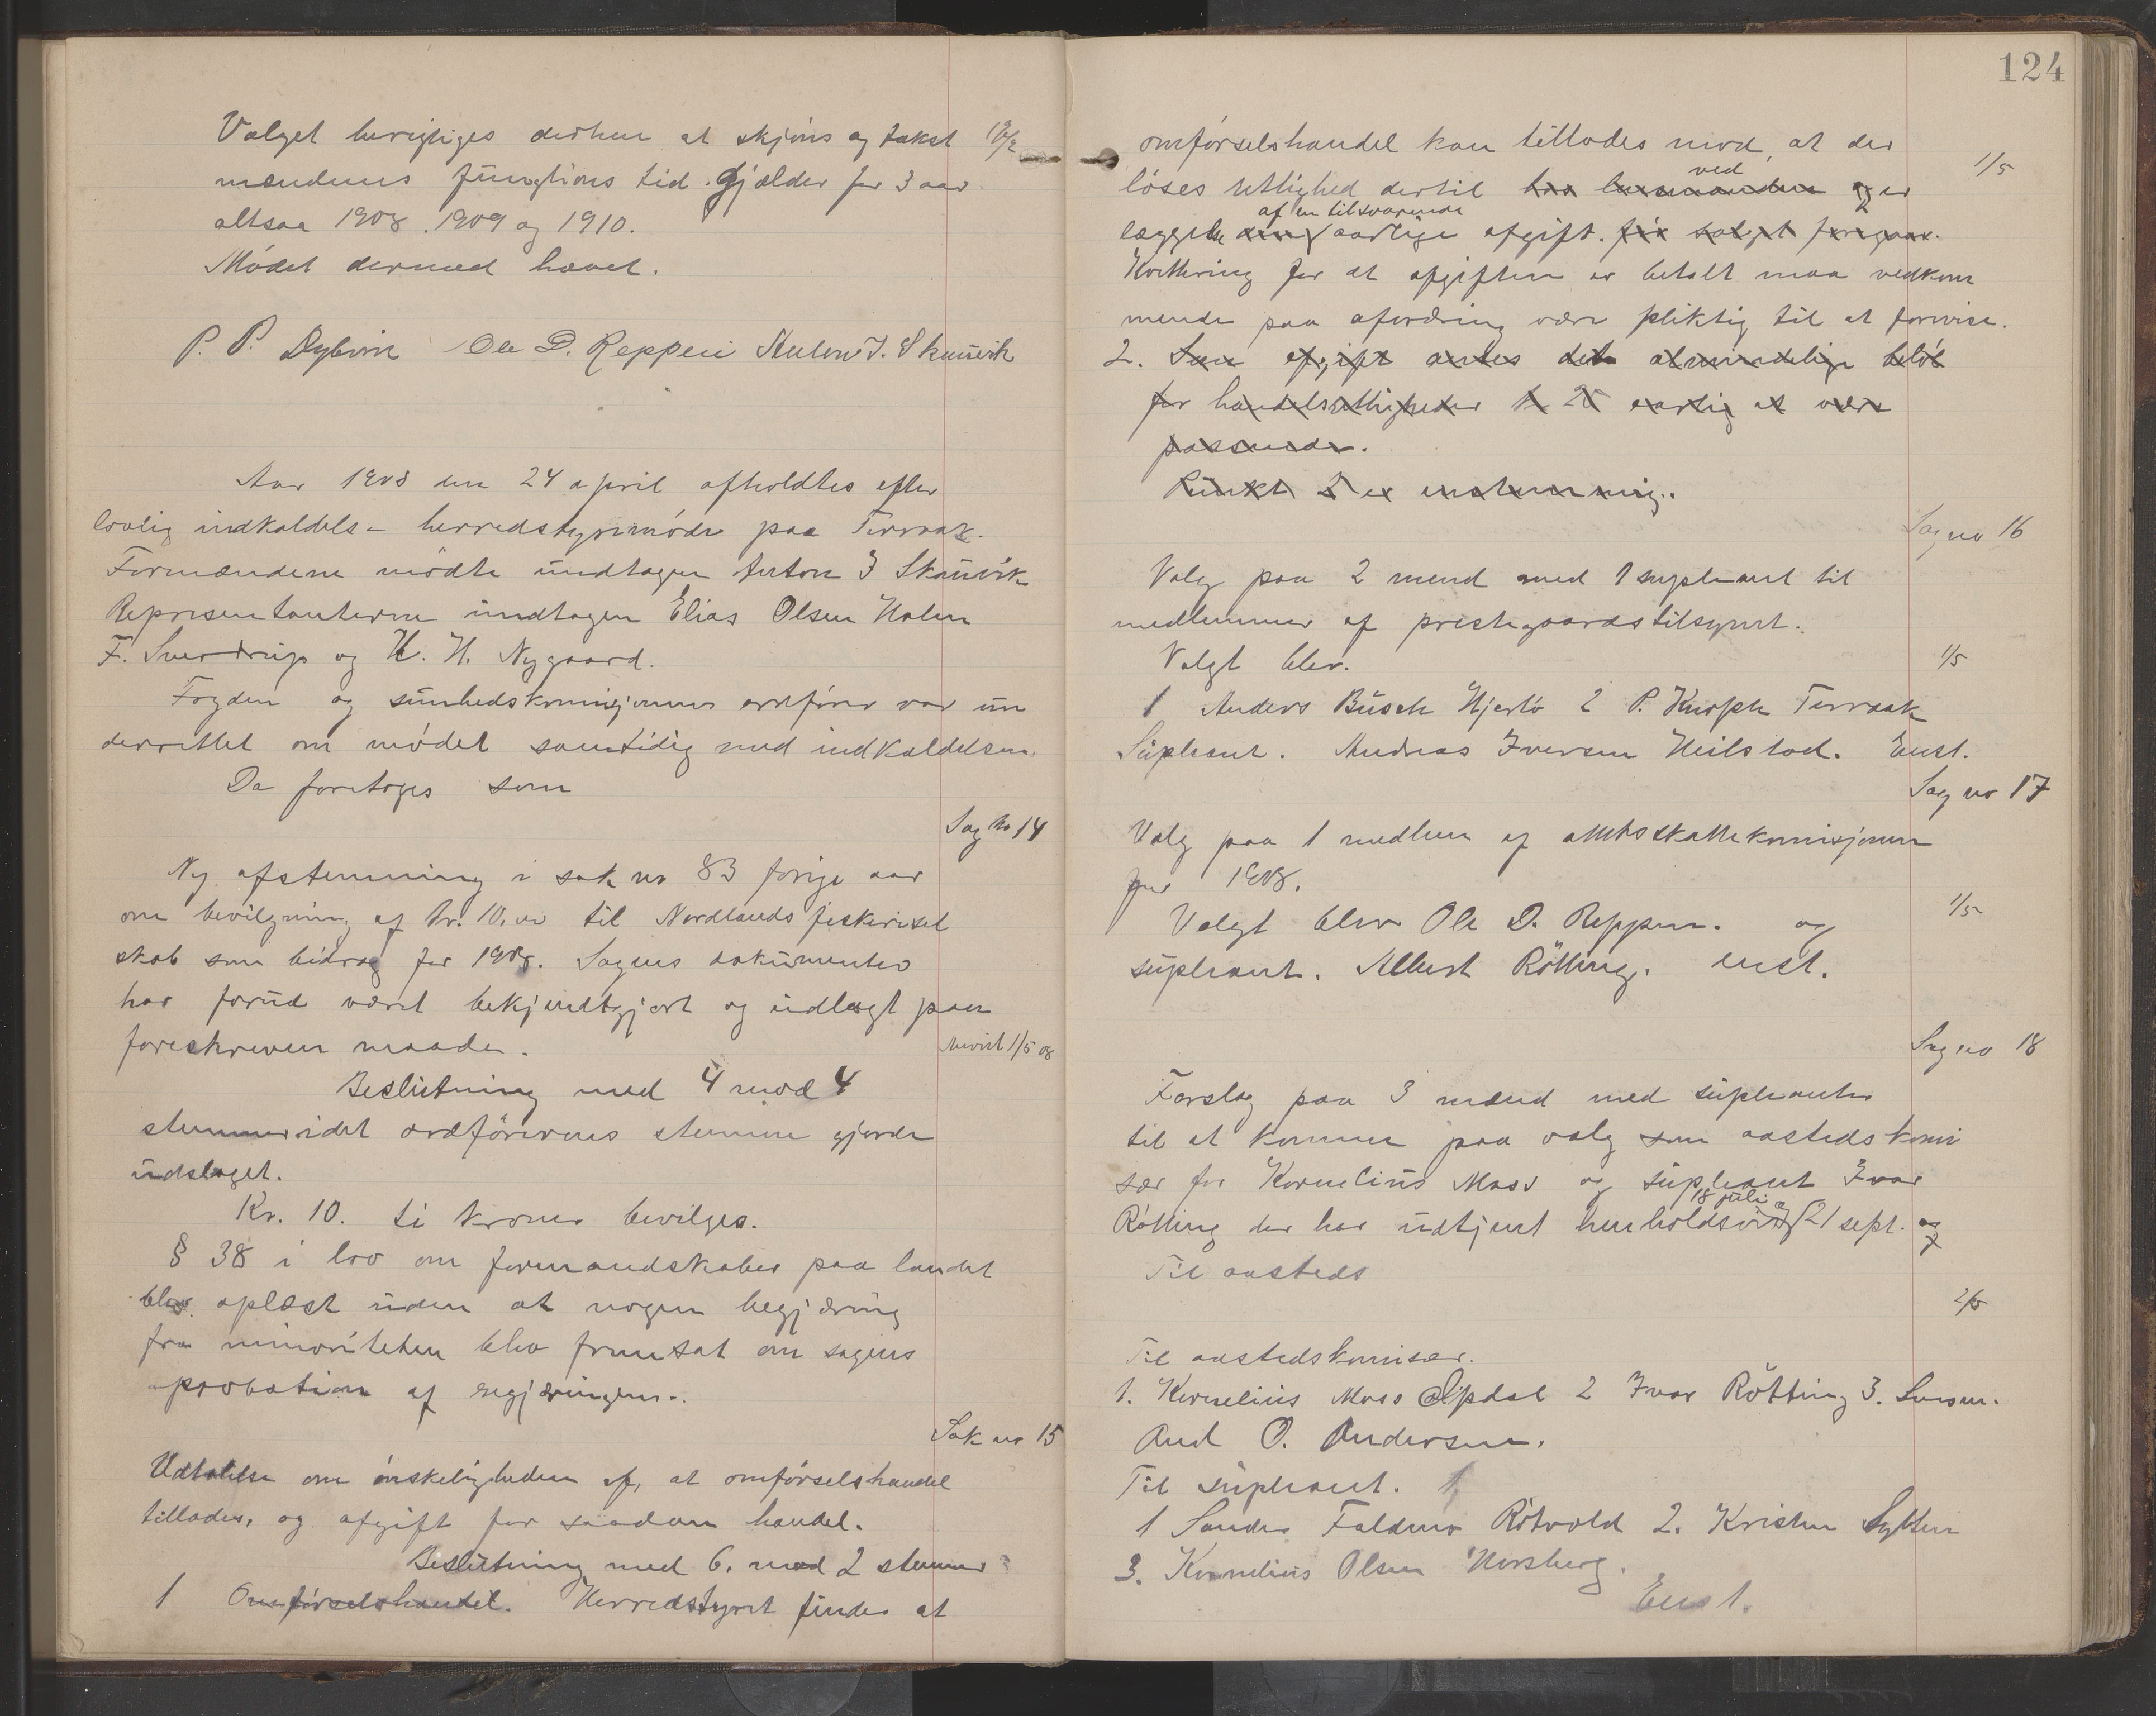 Valget berigtiges derhen at skjøns og takst
mændenes fungtions tid. Gjælder for 3 aar
altsaa 1908. 1909 og 1910.
Mødet dermed hævet.
P. P. Dybvik Ole D. Reppen Anton J. Skaanvik
Aar 1908 den 24 april afholdtes efter
lovlig indkaldelse herredstyremøde paa Terraak.
Formændene mødte undtagen Anton J Skaanvik
Representanterne undtagen Elias Olsen Holm
F. Sverdrup og K. H. Nygaard.
Fogden og sunhedskomisjonens ordfører var un
derrettet om mødet samtidig med indkaldelsen.
Da foretoges som
Sag no 14
Ny afstemning i sak no 83 forige aar
om bevilgning af kr. 10,00 til Nordlands fiskerisel
skab som bidrag for 1908. Sagens dokumenter
har forud været bekjendtgjort og udlagt paa
foreskreven maade.
1/5 08
Beslutning med 4 mod 4
stemmer idet ordførerens stemme gjorde
udslaget.
Kr. 10. ti kroner bevilges.
§ 38 i lov om formandskaber paa landet
blev oplæst uden at nogen begjæring
fra minoriteten blev fremsat om sagens
aprobation af regjæringen.
Sak no 15
Udtalelse om ønskeligheden af, at omførselshandel
tillades, og afgift for saadan handel.
Beslutning med 6. mod 2 stemmer
1 Omførselshandel. Herredstyret finder at
124
omførselshandel kan tillades mod, at der
1/5
løses rettighed dertil hos lensmanden ved og er
læggelse af en tilsvarende aarlige afgift. før salget foregaar.
Kvittering for at afgiften er betalt maa vedkom
mende paa afordring være pliktig til at forevise.
2. Som afgift antes det almindelige beløb
for handelsrettigheder 25 aarlig at være
passende.
Punkt 2 er enstemmig.
Sag no 16
Valg paa 2 mend med 1 supleant til
medlemmer af prestegaardstilsynet.
Valgt blev.
1/5
1 Anders Busch Hjertø 2 P. Knoph Terraak
Supleant. Andreas Iversen Heilstad. Enst.
Sag no 17
Valg paa 1 medlem af amtsskattekomisjonen
for 1908.
1/5
Valgt blev Ole D. Reppen. og
supleant. Albert Røtting. enst.
Sag no 18
Forslag paa 3 mænd med supleanter
til at komme paa valg som aastedskomi
sær for Kornelius Moss og supleant Ivar
Røtting der har udtjent henholdsvis 18 juli og 21 sept. og
Til aasteds
2/5
Til aastedskomisær.
1. Kornelius Moss Opdal 2 Ivar Røtting 3. Lensm.
And O. Andersen.
Til supleant. 1
1 Sander Faldmo Røtvold 2. Kristen Sylten
3. Kornelius Olsen Horsberg.
Enst.